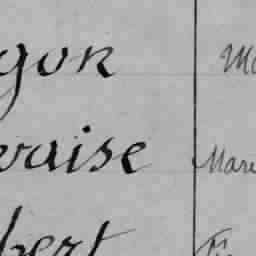 gon Ma
vaise Mare
bert